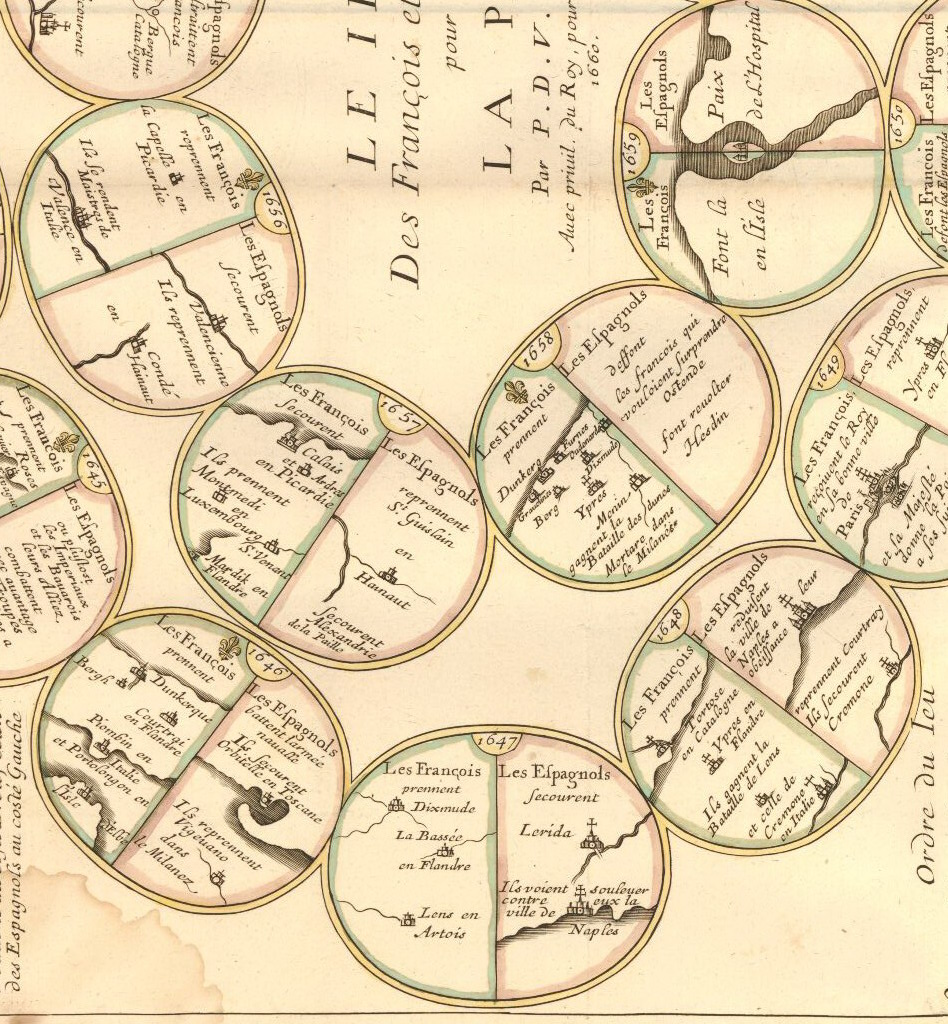 Espagnols
Berque
Catalogne
Les François
reprennent
la Capelle en
Picardie
Ils se rendent
Maistres de
Valence en
Italie
1656
Les Eſpagnols
ſecourent
Valencienne
Ils reprennent
Condé
en
Hainaut
LE
Des François et
pour
LA P
Par P. D. V.
Avec privil. du Roy, pour
1660.
Les
Eſpagnols
Paix
de L'Hospital
1659
Les
François
Font la
en l'Isle
1650
Les Eſpagnols
1658
Les François
prennent
Dunkerq
Furnes
Oudenarde
Dixmude
Berg
Ypres
Menin
gagnent la
Bataille des dunes
Mortare dans
le Milanés
Les Eſpagnols
deffont
les francois qui
vouloient ſurprendre
Oſtende
font reuolter
Hesdin
1657
Les François
ſecourent
Calais
et Ardres
en Picardie
Ils prennent
Montmedi
en
Luxembourg
St. Venant
Mardik en
Flandre
Les Eſpagnols
reprennent
St. Guislain
en
Hainaut
ſecourent
Alexandrie
de la Paille
1649
Les François
reçoiuent le Roy
en ſa bonne ville
de
Paris
et la Majesté
donne la
Les Eſpagnols
reprennent
Ypres
1645
Les François
prennent
Roses
Les Eſpagnols
ou pluſtost
les Imperiaux
les Bauarois
combatent
auec auantage
1646
Les François
prennent
Bergh
Dunkerque
Courtray
en Flandre
Piombin en
Italie
et Portolongon en
l'isle
Elbe
Les Eſpagnols
Ils ſecourent
Orbitelle en Toscane
Ils reprennent
Vigeuano
dans
le Milanez
1647
Les François
prennent
Dixmude
La Bassée
en Flandre
Lens en
Artois
Les Eſpagnols
ſecourent
Lerida
Ils voient ſouleuer
contre eux la
ville de
Naples
1648
Les François
prennent
Tortose
en Catalogne
Ypres en
Flandre
Ils gagnent la
Bataille de Lens
et celle de
Cremone
en Italie
Les Eſpagnols
reduiſent
la ville de
Naples a leur
obeiſſance
reprennent Courtray
Ils ſecourent
Cremone
des Espagnols au costé Gauche
Ordre du Ieu